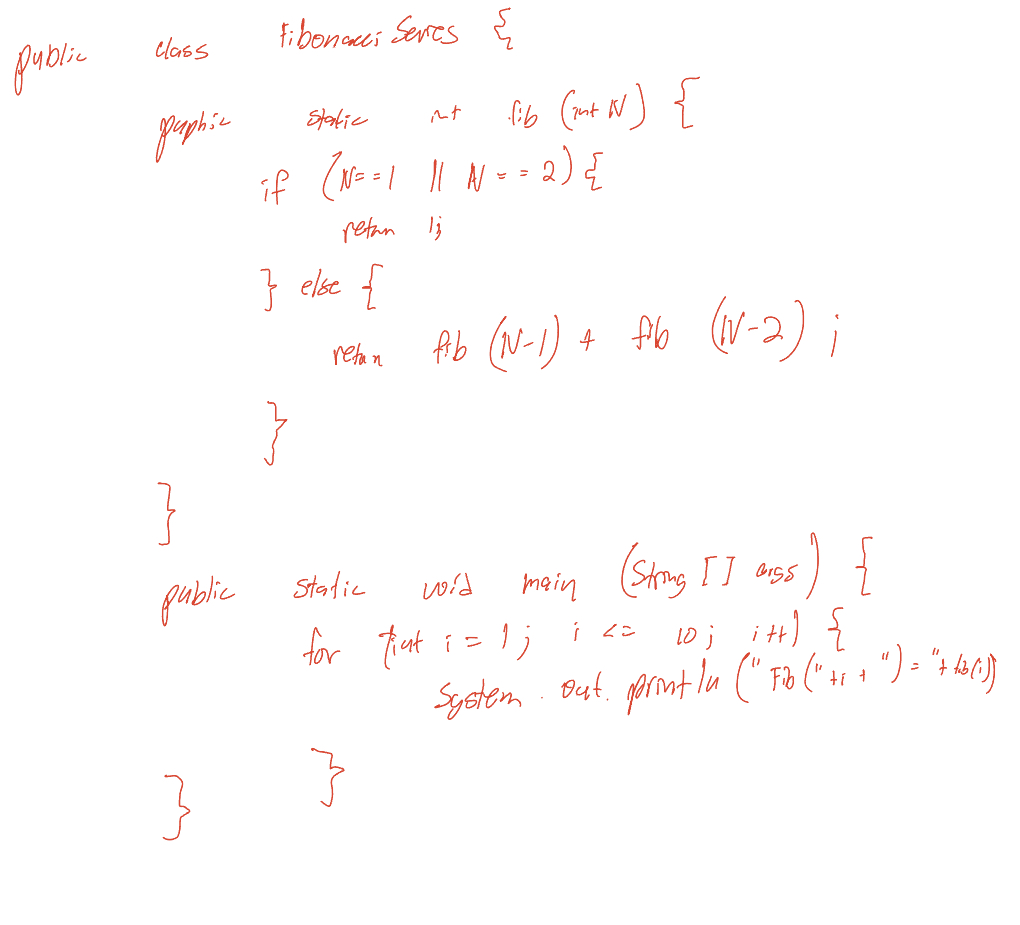 public class Fibonacci Series {
public static int fib (int N) {
if (N==1 || N == 2) {
return 1;
} else {
return fib (N-1) + fib (N-2) ;
}
}
public static void main (String [] args) {
for (int i = 1; i <= 10; i++) {
System.out.println ("Fib(" +i+ ") = "+ fib(i))
}
}